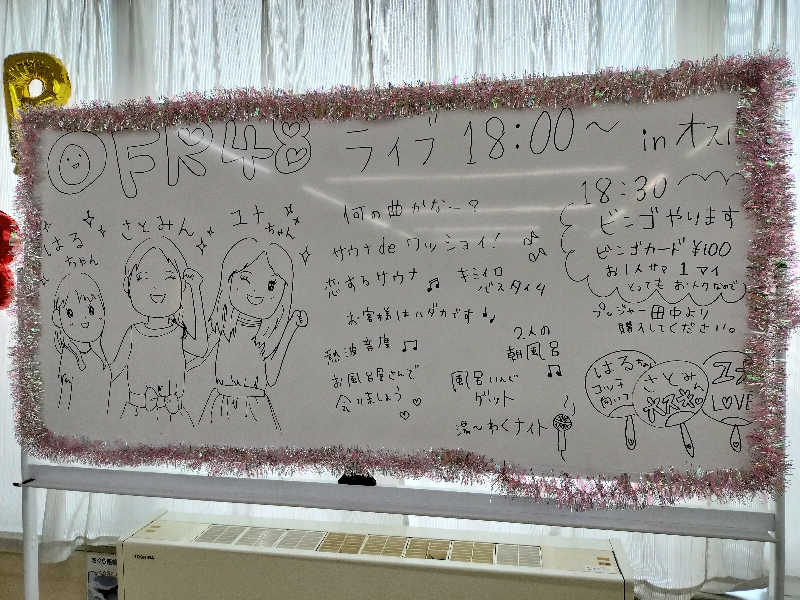 OFR48 ライブ 18:00～ in オス
はる
ちゃん
さとみん
ユナ
ちゃん
何の曲かな～?
サウナ de ワッショイ!
恋するサウナ♫
キミイロ
バスタイム
お客様はハダカです♪
熱波音頭♫
2人の
朝風呂
♫
お風呂屋さんで
会いましょう
風呂いんど
ダット
湯～わくナイト
18:30
ビンゴやります
ビンゴカード ¥100
お1人サマ 1マイ
とっても おトクなので
プレジャー田中より
購入してください。
はるちゃん
コッチ
向いて
さとみん
LOVE
TOSHIBA